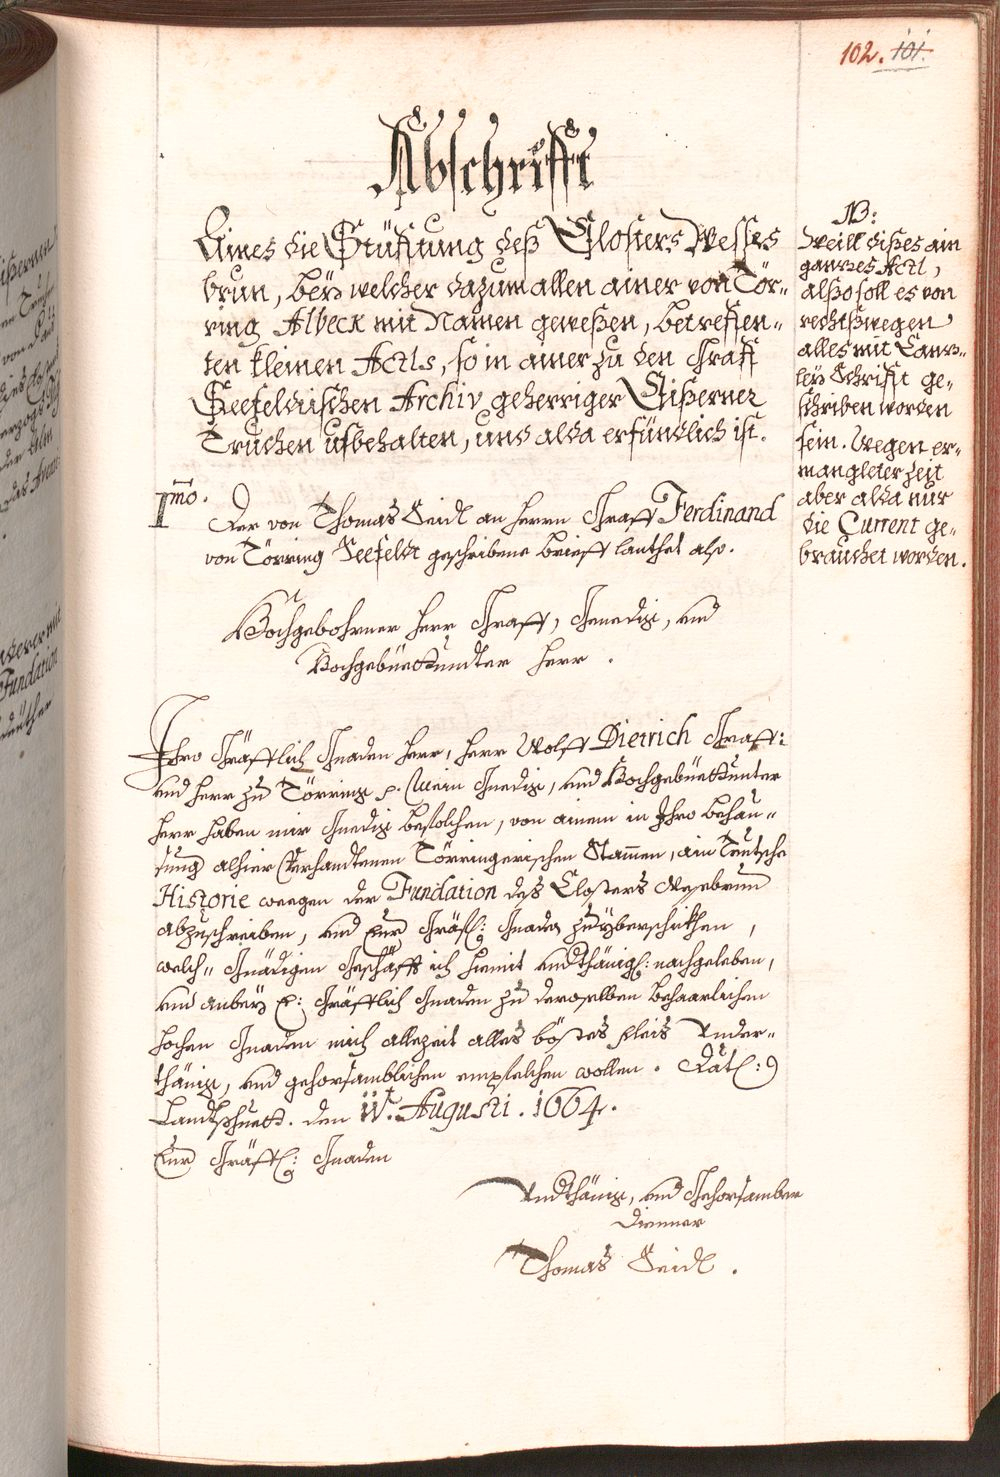 102. 101.
Abschrifft
Eines die Stüfftung deß Closters Wesses
brun, beÿ welcher dazumallen ainer von Tör-
ring Albeck mit Namen geweßen, betreffen-
ten kleinen Acts, so in ainer zu den Graff
Seefeldischen Archiv geherriger Eißerner
Truchen ufbehalten, und alda erfündlich ist.
NB:
Weill dißes ain
ganzes Act,
alßo soll es von
rechtßwegen
alles mit Canz-
leÿ Schrifft ge-
schriben worden
sein. Wegen er-
mangleter Zeit
aber alda nur
die Current ge-
brauchet worden.
1mo. Der von Thomas Seidl an Herrn Graff Ferdinand
von Törring Seefeldt geschribene brieff lauthet also.
Hochgebohrner Herr Graff, Genedig, und
Hochgebüettundter Herr.
Ihro Gräfflich Gnaden Herr, Herr Wolff Dietrich Graff:
und Herr zu Törring p. Mein Gnedig, und Hochgebüettunter
Herr haben mir Gnedig befolchen, von ainem in Ihro behau-
sung alhier Verhandtenen Törringerischen Stammen, ain Teutsche
Historie weegen der Fundation deß Closters Wesebrun
abzuschreiben, und Eur Gräfl: Gnaden zu yberschikhen,
welch- Gnädigen Geschäfft ich hiemit undthänigl: nachgeleben,
und anbeÿ E: Gräfflich Gnaden zu deroselben behaarlichen
hochen Gnaden mich allezeit alles bösstes fleis Under-
thänig, und gehorsamblichen empfelchen wollen. Datl:
Landtshuett. den 11t. Augusti. 1664.
Eur Gräffl: Gnaden
Undthänig, und Gehorsamber
Dienner
Thomas Seidl.